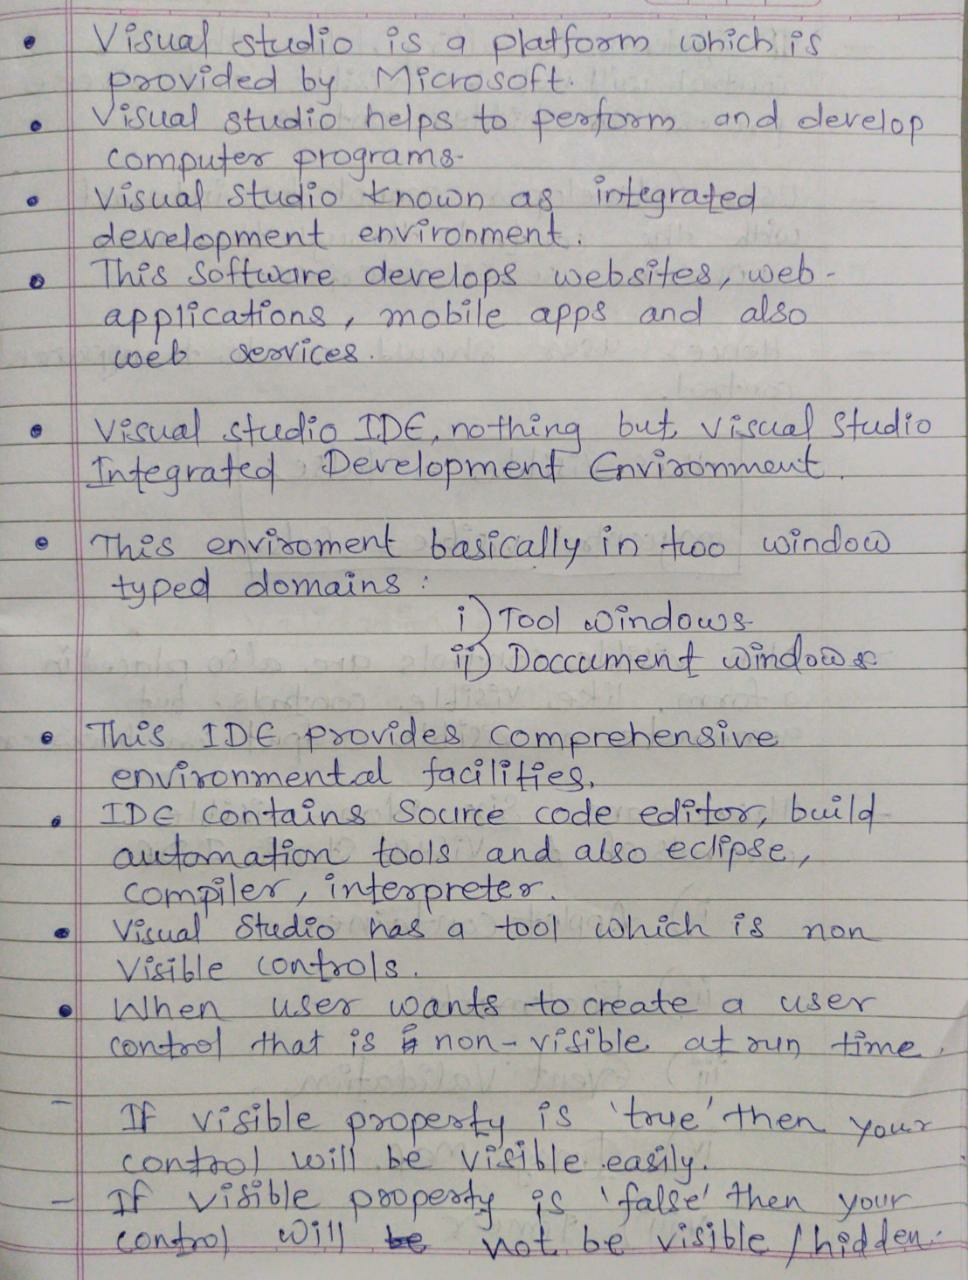 • Visual studio is a platform which is
provided by Microsoft.
• Visual studio helps to perform and develop
computer programs.
• Visual studio known as integrated
development environment.
• This software develops websites, web-
applications, mobile apps and also
web services.
• Visual studio IDE, nothing but, visual studio
Integrated Development Environment.
• This enviroment basically in two window
typed domains :
i) Tool windows
ii) Doccument windows
• This IDE provides comprehensive
environmental facilities.
• IDE contains source code editor, build
automation tools and also eclipse,
compiler, interpreter.
• Visual Studio has a tool which is non
visible controls.
• When user wants to create a user
control that is non-visible at run time.
– If visible property is 'true' then your
control will be visible easily.
– If visible property is 'false' then your
control will be not be visible / hidden.